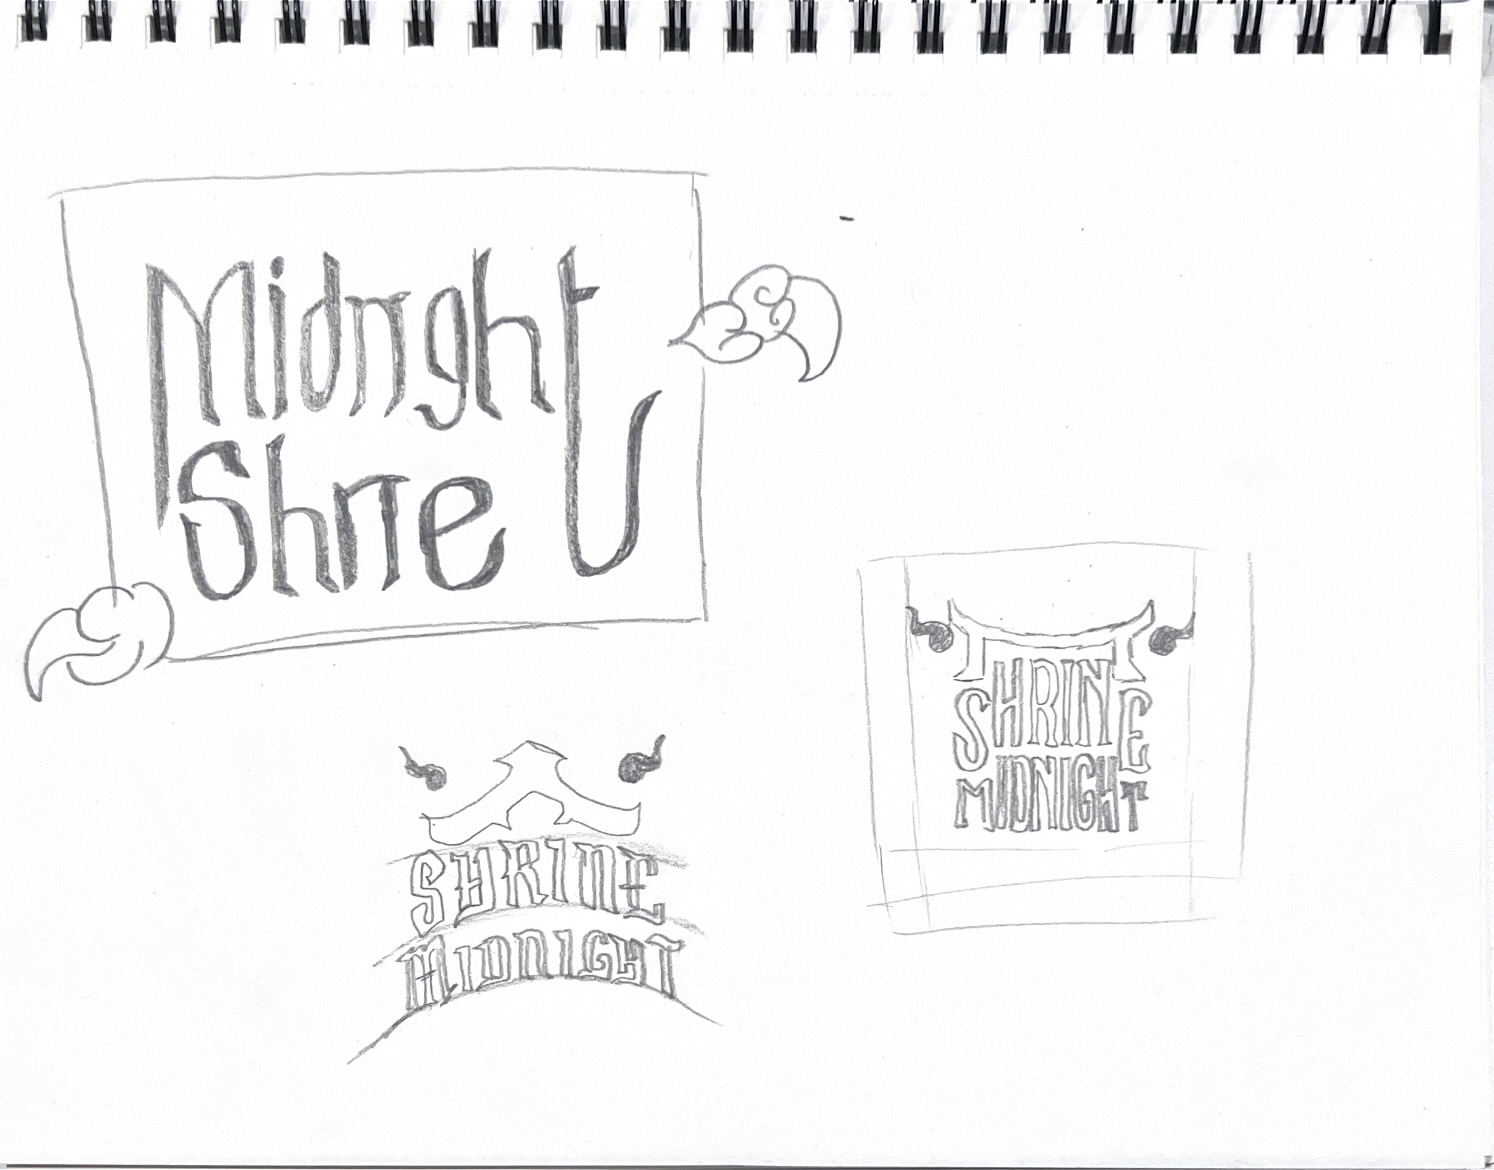 Midnight
Shrine
SHRINE
MIDNIGHT
SHRINE
MIDNIGHT